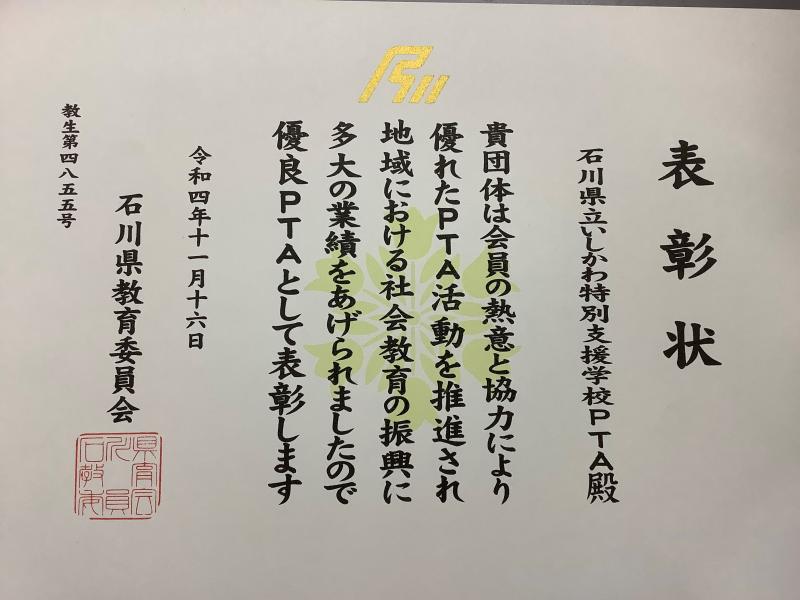 表彰状
石川県立いしかわ特別支援学校PTA殿
貴団体は会員の熱意と協力により
優れたPTA活動を推進され
地域における社会教育の振興に
多大の業績をあげられましたので
優良PTAとして表彰します
令和四年十一月十六日
石川県教育委員会
教生第四八五五号